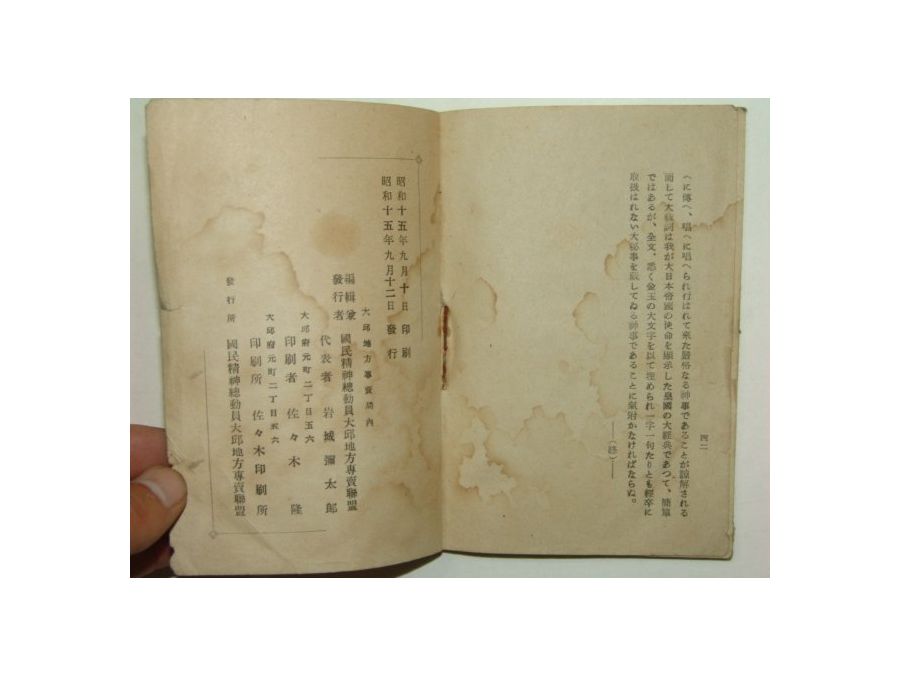 へに傳へ、唱へに唱へられ行はれて來た嚴格なる神事であることが諒解される
而して大祓詞は我が大日本帝國の使命を顯示した皇國の大經典であつて、簡單
ではあるが、全文、悉く金玉の大文字を以て埋められ一字一句たりとも輕卒に
取扱はれない大祕事を藏してゐる神事であることに氣附かなければならぬ。
――(終)――
四二
昭和十五年九月十日 印刷
昭和十五年九月十二日 發行
大邱地方專賣局內
編輯兼發行者 國民精神總動員大邱地方專賣聯盟
代表者 岩城彌太郎
大邱府元町二丁目五六
印刷者 佐々木隆
大邱府元町二丁目五六
印刷所 佐々木印刷所
發行所 國民精神總動員大邱地方專賣聯盟